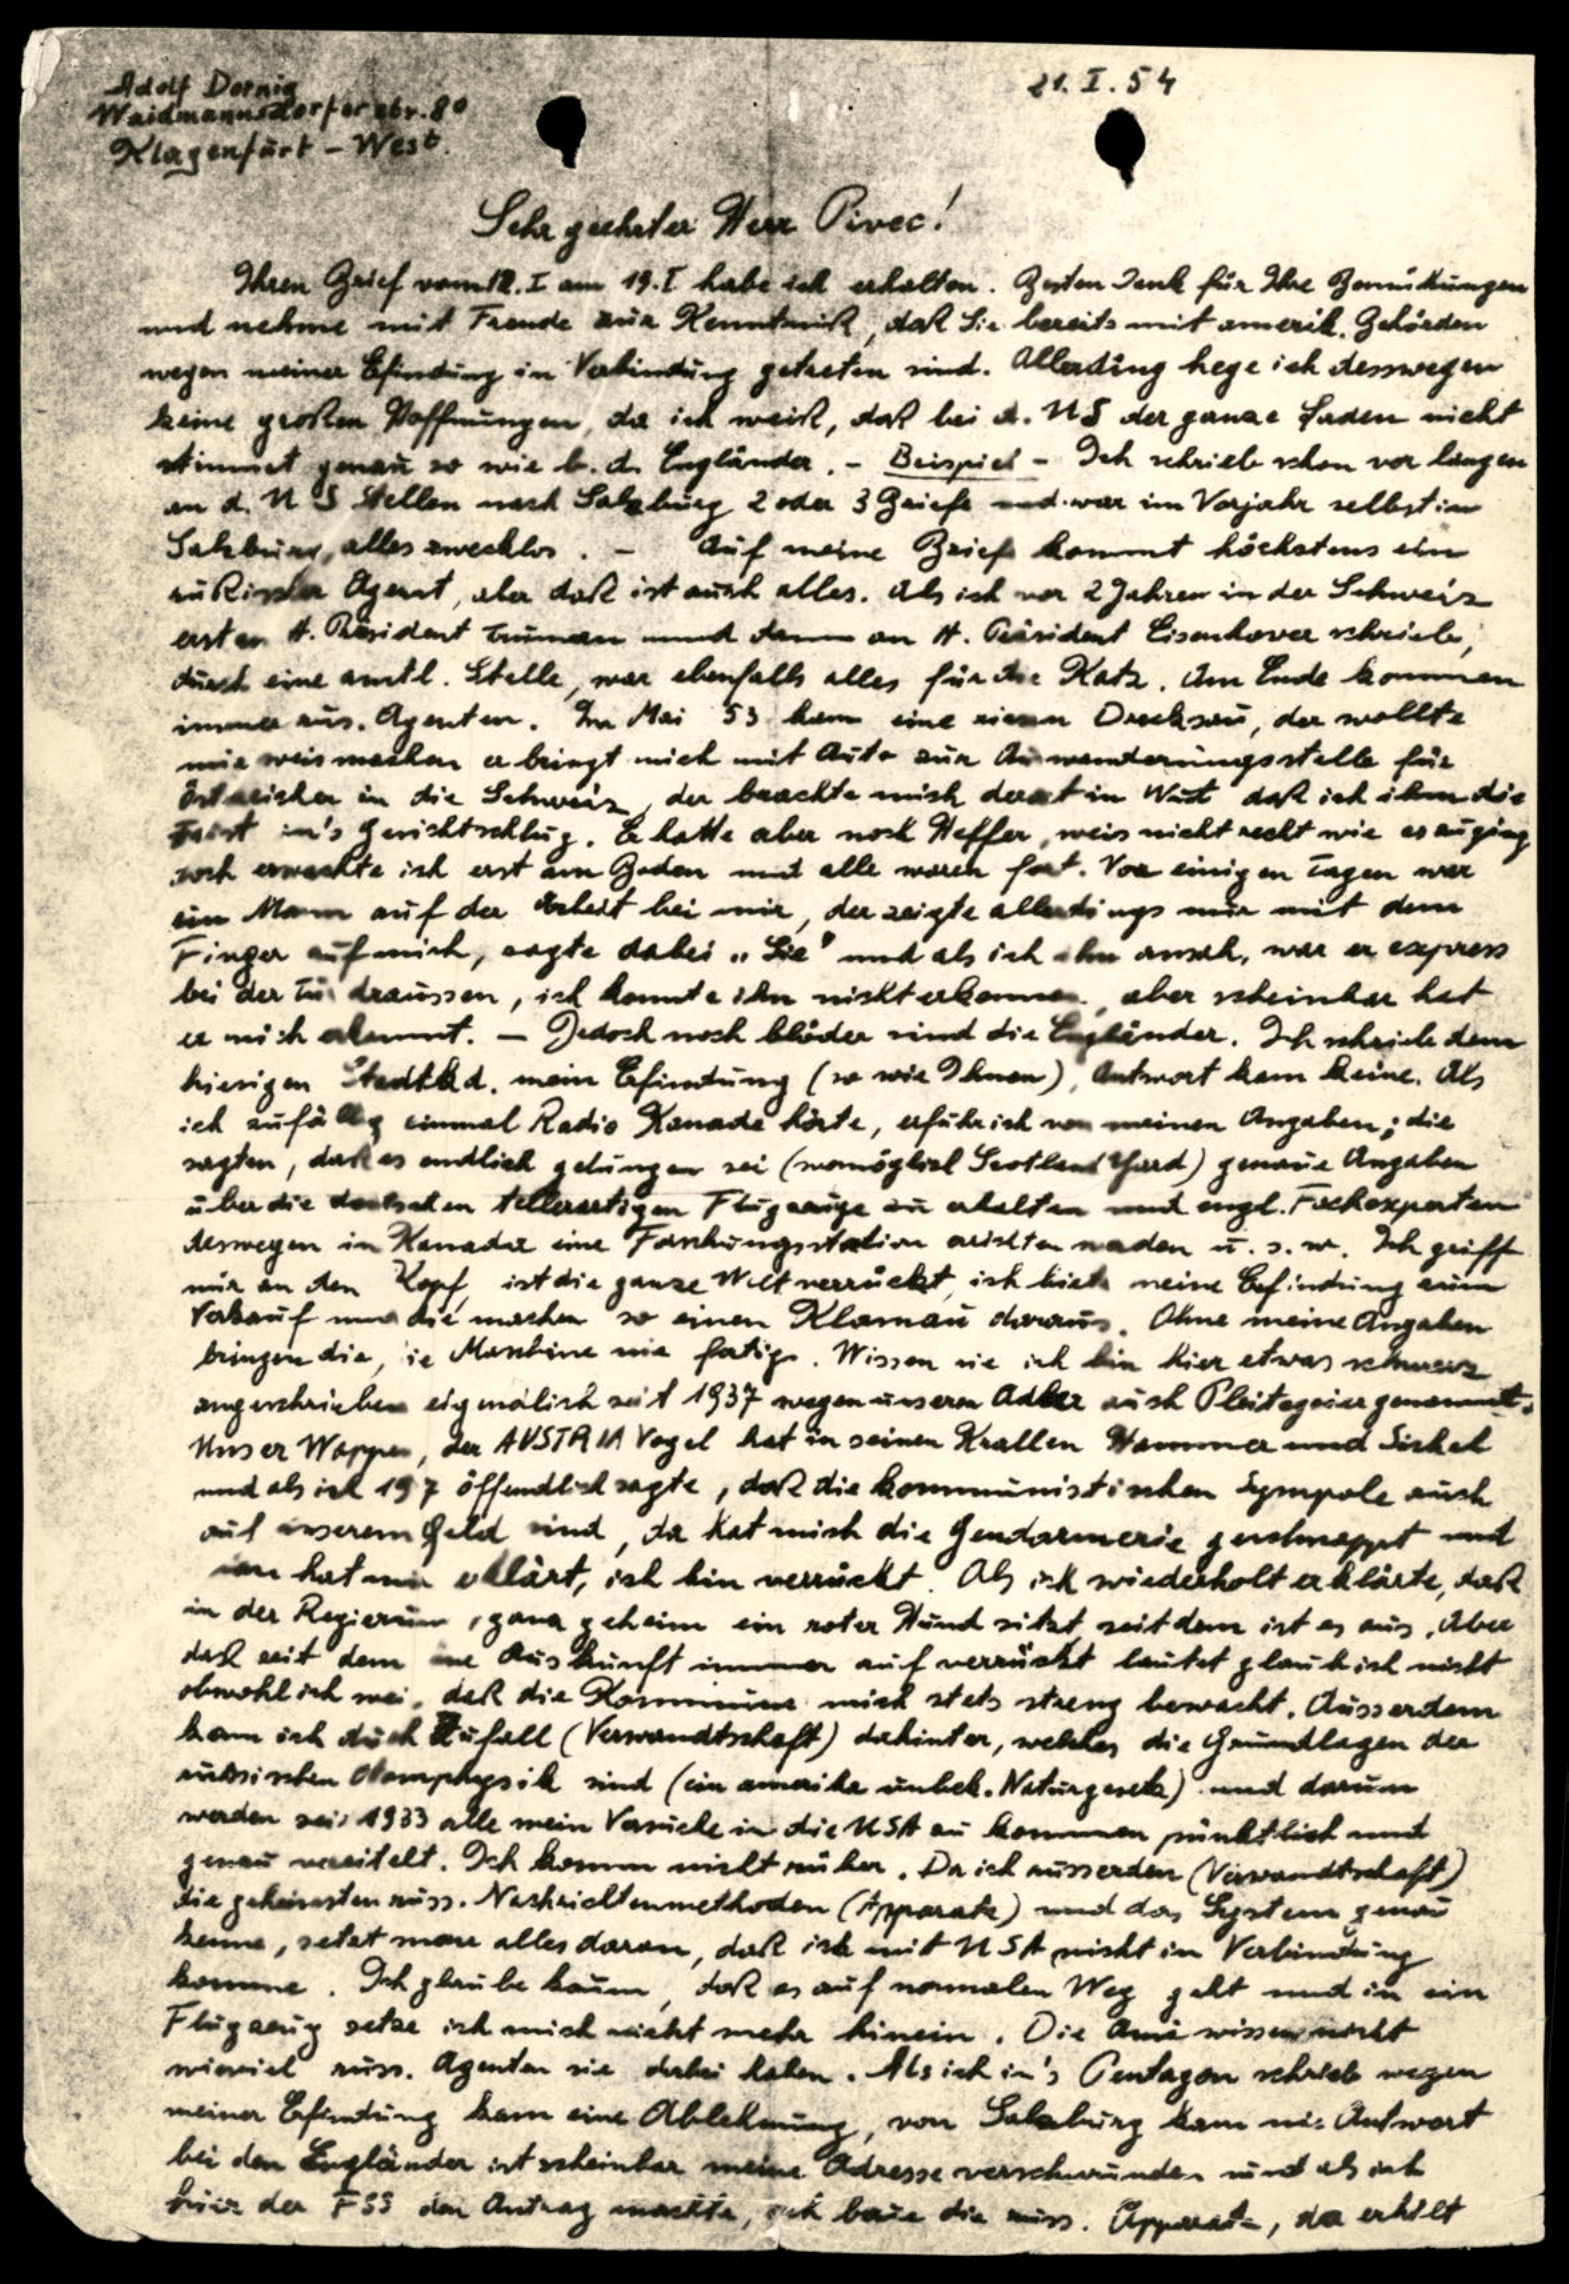 Adolf Dornig
Waidmannsdorferstr. 80
Klagenfurt – West.
21. I. 54
Sehr geehrter Herr Pivec!
Ihren Brief vom 12. I am 19. I habe ich erhalten. Besten Dank für Ihre Bemühungen
und nehme mit Freude zur Kenntniß, daß Sie bereits mit amerik. Behörden
wegen meiner Erfindung in Verbindung getreten sind. Allerding hege ich desswegen
keine großen Hoffnungen, da ich weiß, daß bei d. US der ganze Laden nicht
stimmt genau so wie b. d. Engländer. – Beispiel – Ich schrieb schon vor langen
an d. US Stellen nach Salzburg 2 oder 3 Briefe und war im Vorjahr selbst in
Salzburg, alles zwecklos. – Auf meine Briefe kommt höchstens ein
rußischer Agent, aber daß ist auch alles. Als ich vor 2 Jahren in der Schweiz
erst an H. Präsident Truman und dann an H. Präsident Eisenhower schrieb,
durch eine amtl. Stelle, war ebenfalls alles für die Katz. Am Ende kommen
immer rus. Agenten. Im Mai 53 kam eine Drecksau, der wollte
mir weis machen er bringt mich mit Auto zur Auswanderungsstelle für
Östreicher in die Schweiz, der brachte mich derart in Wut daß ich ihm die
Faust in's Gericht schlug. Er hatte aber noch Helfer, weis nicht recht wie es zuging
noch erwachte ich erst am Boden und alle waren fort. Vor einigen Tagen war
ein Mann auf der Arbeit bei mir, der zeigte allerdings nur mit dem
Finger auf mich, sagte dabei „Sie" und als ich ihn ansah, war er express
bei der Tür draussen, ich konnte ihn nicht erkennen, aber scheinbar hat
er mich erkannt. – Jedoch noch blöder sind die Engländer. Ich schrieb dem
hiesigen Stadtkd. mein Erfindung (so wie Ihnen), Antwort kam keine. Als
ich zufällig einmal Radio Kanada hörte, erfuhr ich von meinen Angaben; die
sagten, daß es endlich gelungen sei (womöglich Scotland Yard) genaue Angaben
über die deutschen tellerartigen Flugzeuge zu erhalten und engl. Fachexperten
deswegen in Kanada eine Forschungsstation errichten werden u. s. w. Ich griff
mir an den Kopf, ist die ganze Welt verrückt, ich biete meine Erfindung zum
Verkauf und die machen so einen Klamau daraus. Ohne meine Angaben
bringen die, die Maschine nie fertig. Wissen sie ich bin hier etwas schwarz
angeschrieben eigendlich seit 1937 wegen unseren Adler auch Pleitegeier genannt.
Unser Wappen, der AUSTRIA Vogel hat in seinen Krallen Hammer und Sichel
und als ich 1937 öffendlich sagte, daß die kommunistischen Sympole auch
auf unserem Geld sind, da hat mich die Gendarmerie geschnappt und
man hat mir erklärt, ich bin verrückt. Als ich wiederholt erklärte, daß
in der Regierung, ganz geheim ein roter Hund sitzt, seit dem ist es aus. Aber
daß seit dem die Auskunft immer auf verrückt lautet glaub ich nicht
obwohl ich weis, daß die Kommune mich stets streng bewacht. Ausserdem
kam ich durch Zufall (Verwandtschaft) dahinter, welches die Grundlagen der
russischen Atomphysik sind (ein amerika unbek. Naturgesetz) und darum
werden seit 1933 alle mein Versuche in die USA zu kommen pünktlich und
genau vereitelt. Ich komm nicht rüber. Da ich ausserden (Verwandtschaft)
die geheimsten russ. Nachrichtenmethoden (Apparate) und das System genau
kenne, setzt man alles daran, daß ich mit USA nicht in Verbindung
komme. Ich glaube kaum, daß es auf normalen Weg geht und in ein
Flugzeug setze ich mich nicht mehr hinein. Die Ami wissen nicht
wieviel russ. Agenten sie dabei haben. Als ich in's Pentagon schrieb wegen
meiner Erfindung kam eine Ablehnung, von Salzburg kam nie Antwort
bei den Engländer ist scheinbar meine Adresse verschwunden und als ich
hier der FSS den Antrag machte, ich baue die russ. Apparate, da erhilt